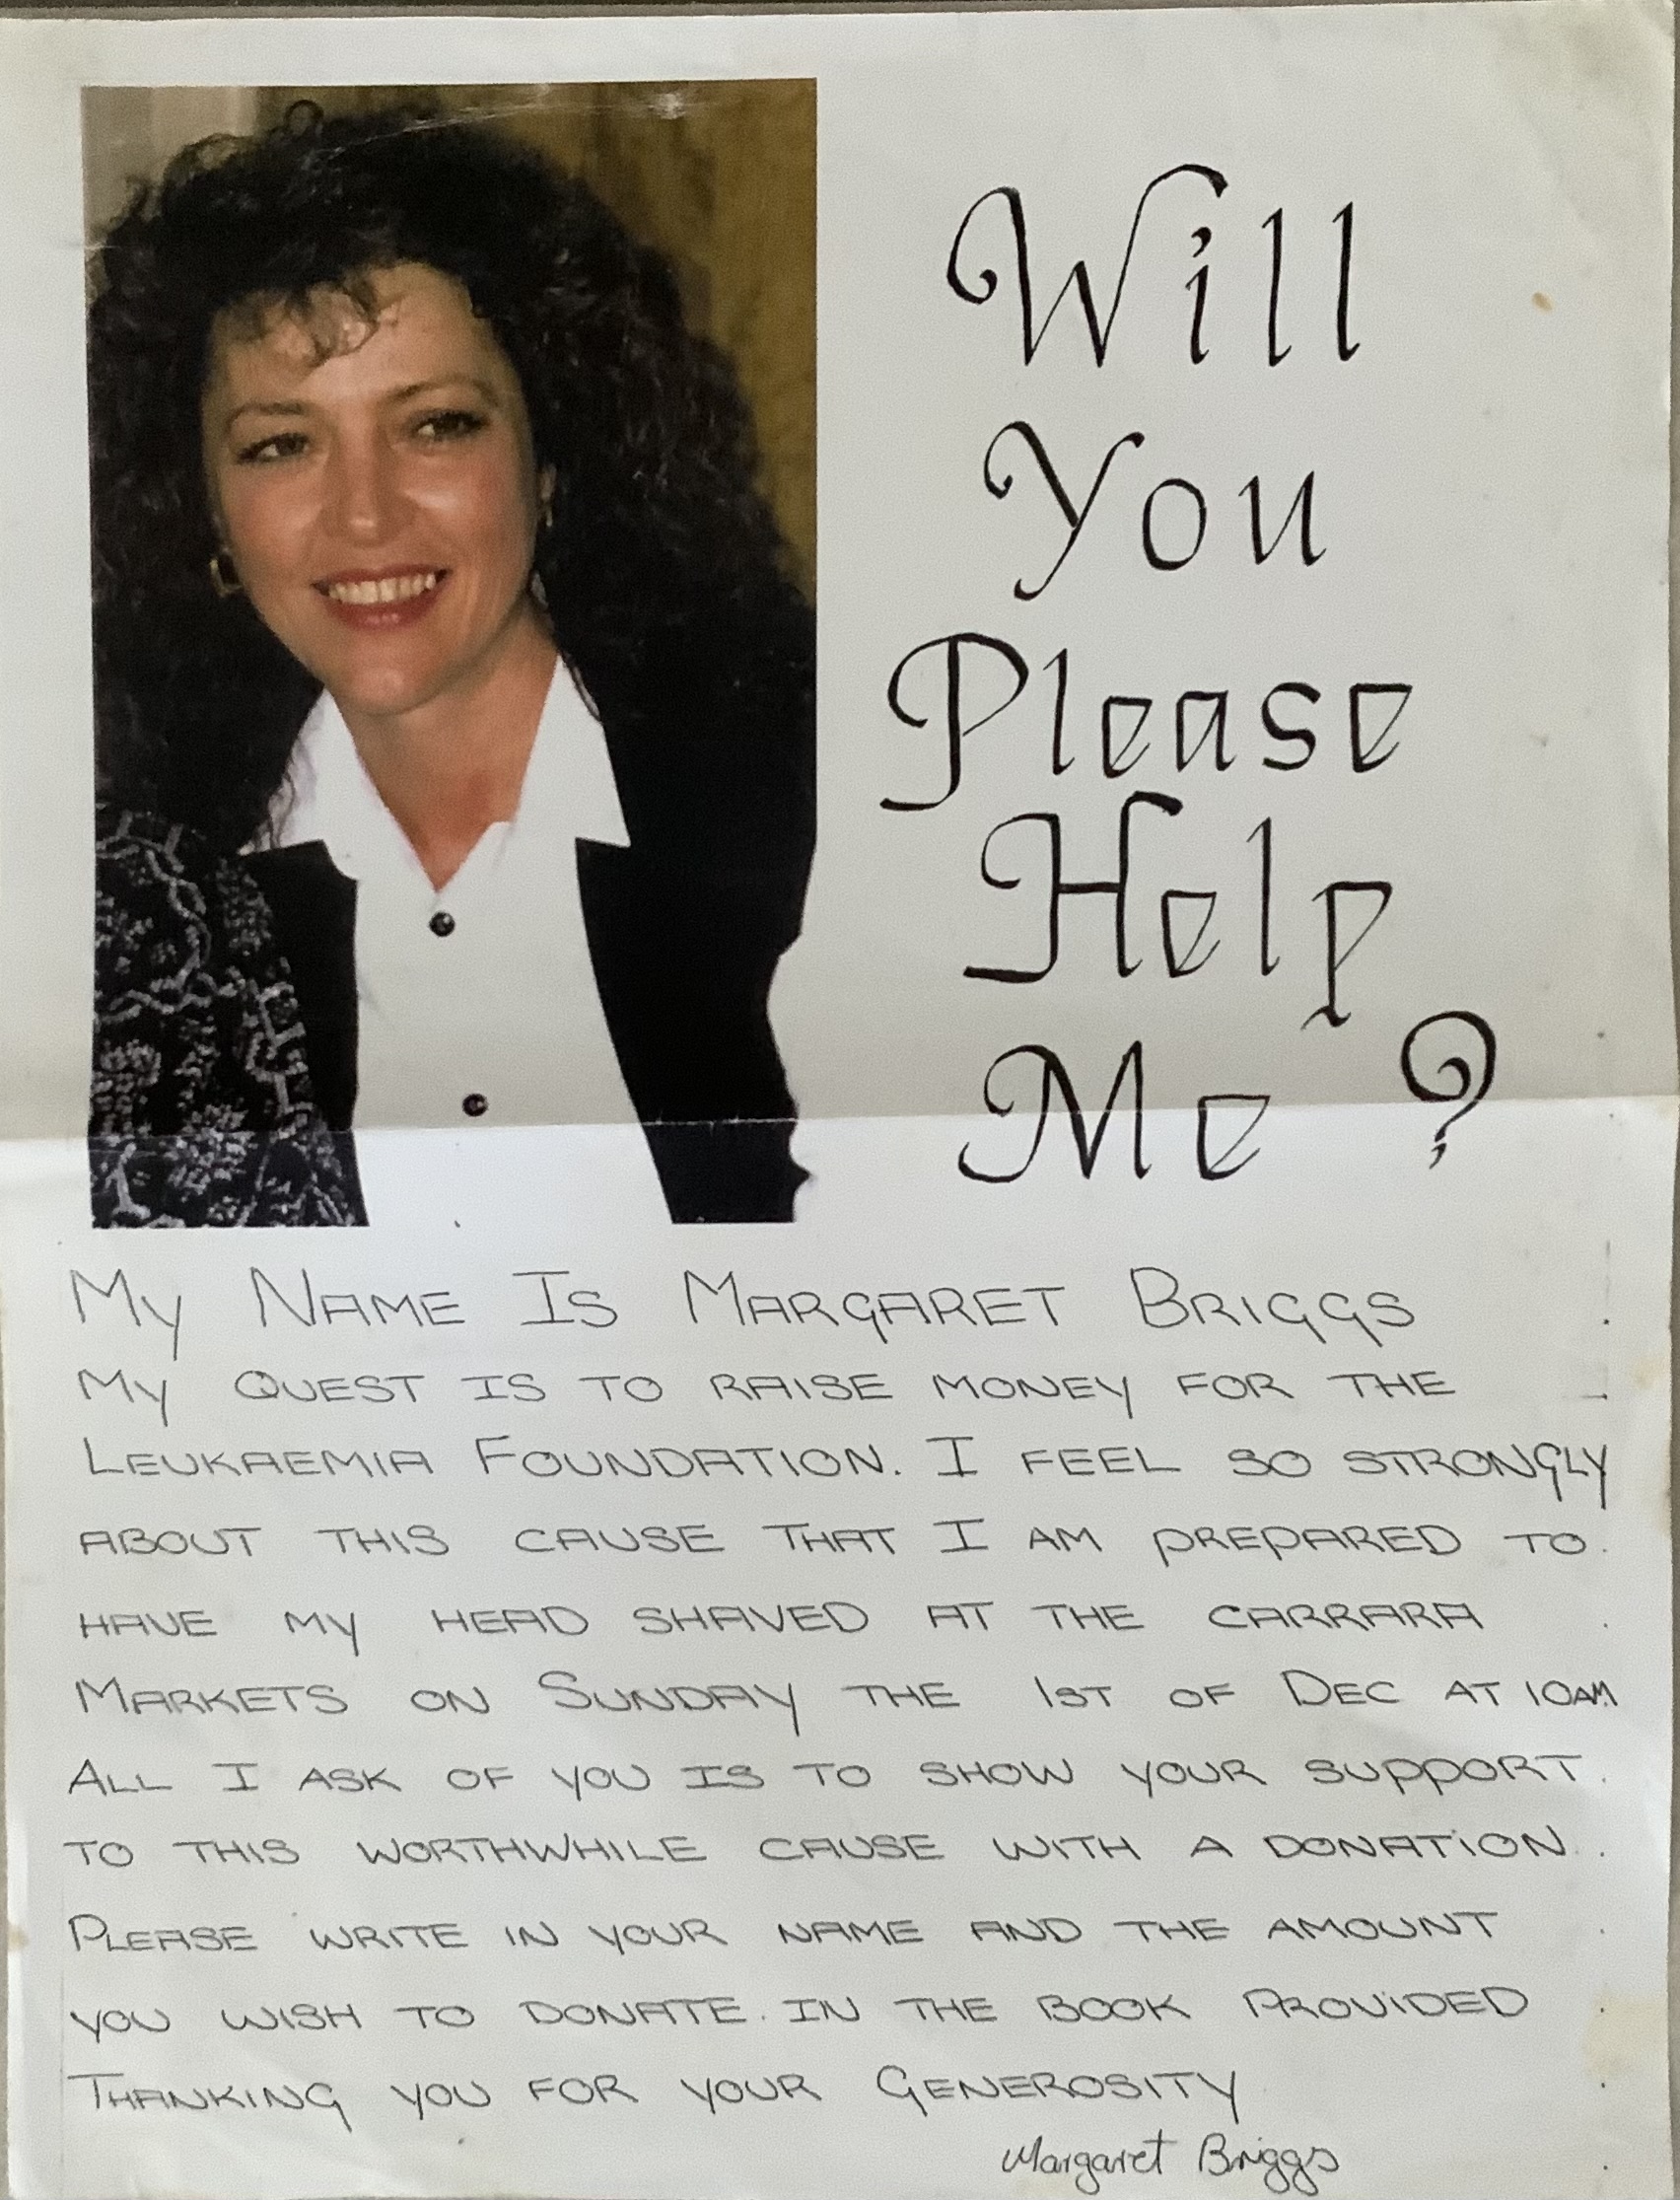 Will
You
Please
Help
Me ?
MY NAME IS MARGARET BRIGGS
MY QUEST IS TO RAISE MONEY FOR THE
LEUKAEMIA FOUNDATION. I FEEL SO STRONGLY
ABOUT THIS CAUSE THAT I AM PREPARED TO
HAVE MY HEAD SHAVED AT THE CARRARA
MARKETS ON SUNDAY THE 1ST OF DEC AT 10AM
ALL I ASK OF YOU IS TO SHOW YOUR SUPPORT
TO THIS WORTHWHILE CAUSE WITH A DONATION
PLEASE WRITE IN YOUR NAME AND THE AMOUNT
YOU WISH TO DONATE. IN THE BOOK PROVIDED
THANKING YOU FOR YOUR GENEROSITY
Margaret Briggs